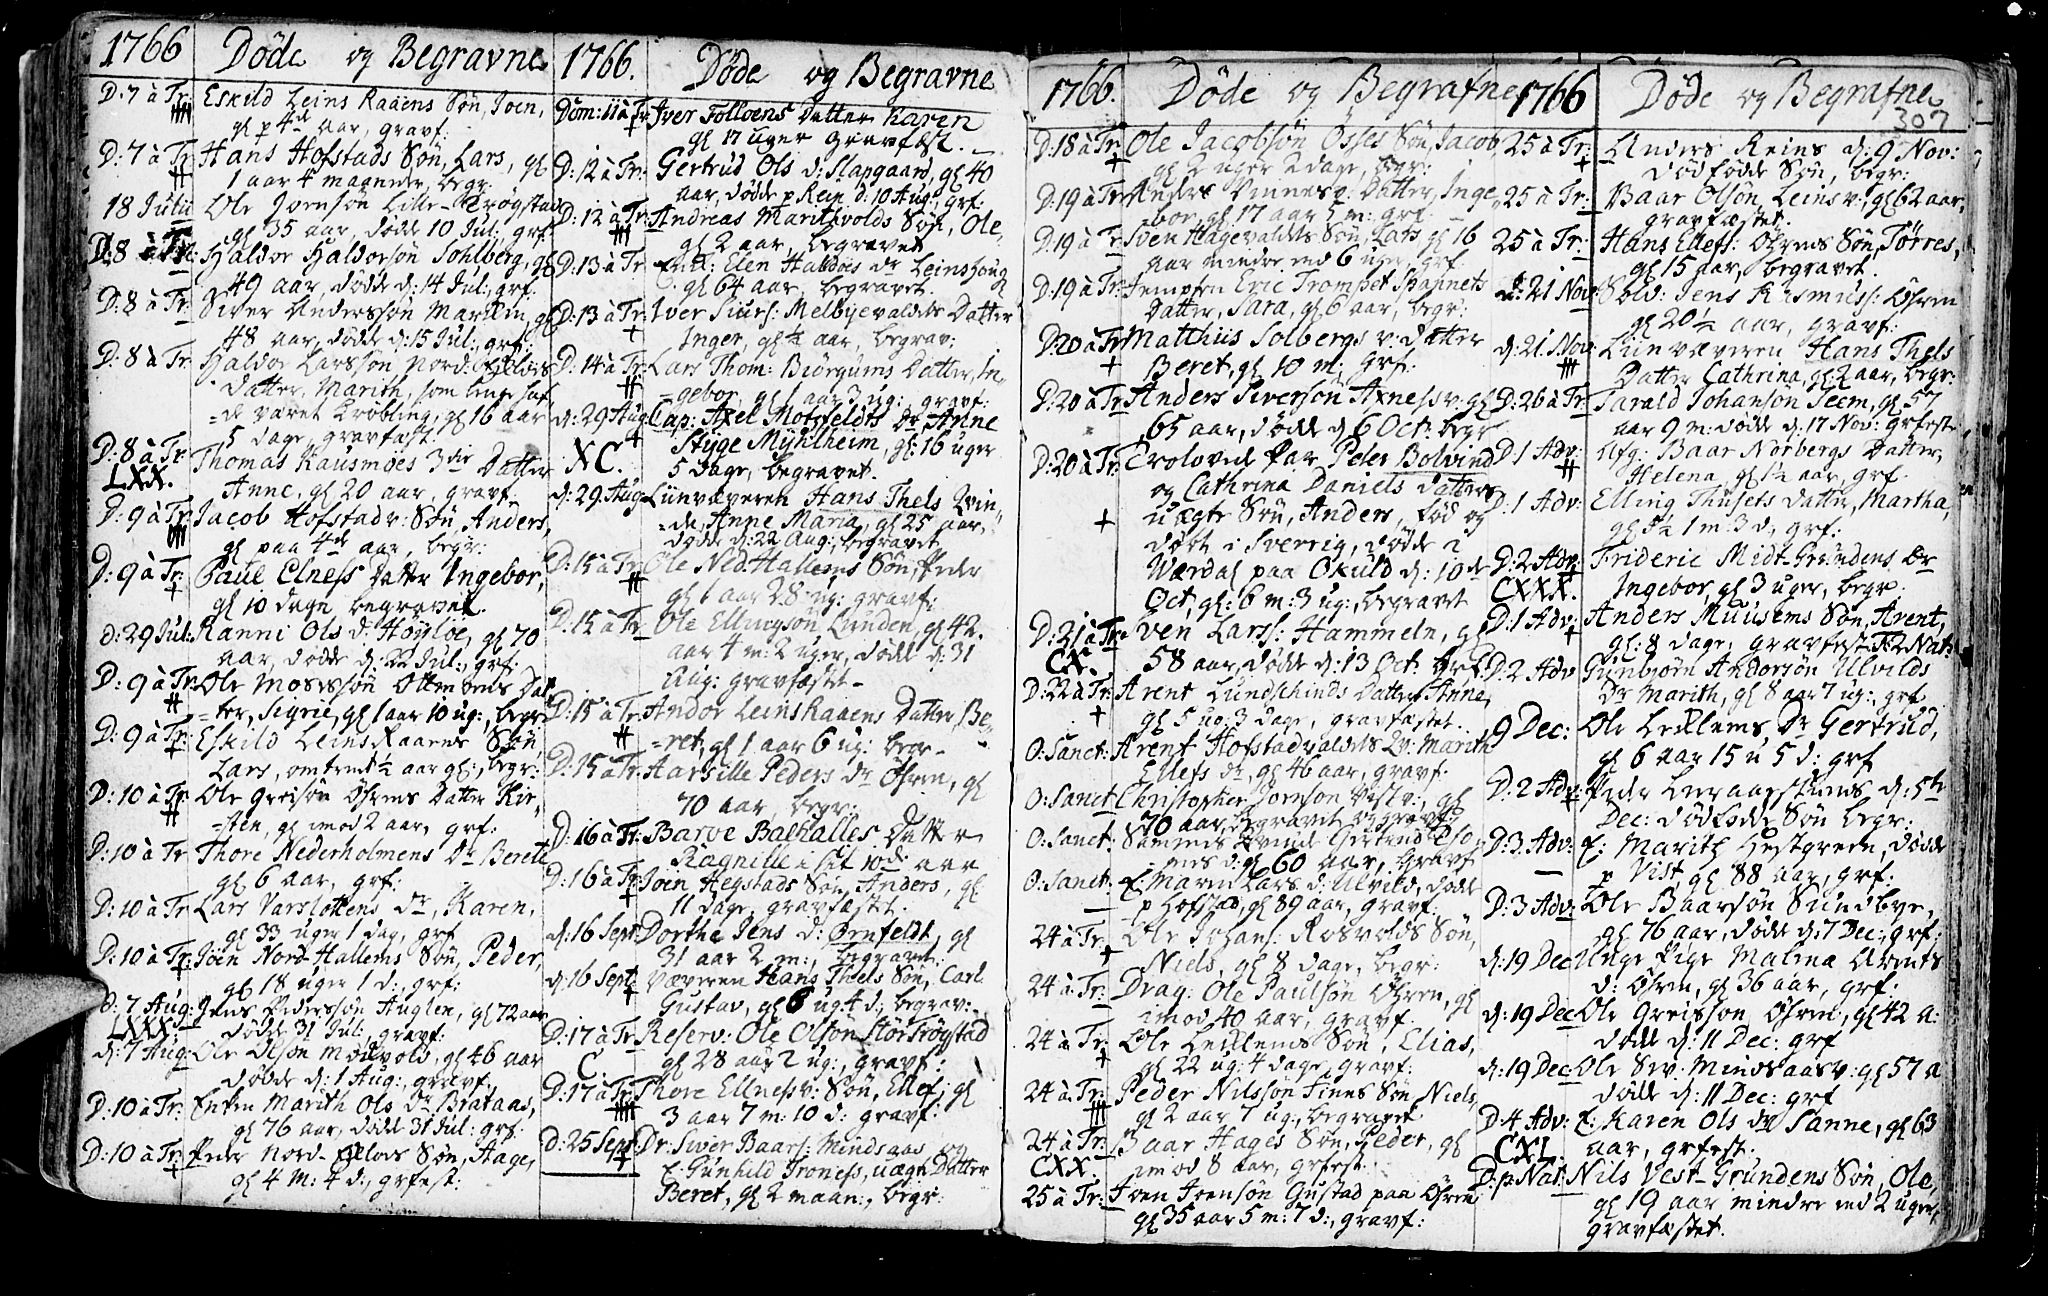 1766 Døde og Begravne
D: 7 à Tr. Eskild Leins Raaens Søn, Joen,
gl p 4de aar, gravf:
D: 7 à Tr Hans Hofstads Søn, Lars, gl
1 aar 4 maaneder, begr:
18 Julii Ole Jornsøn Lille-Trøgstad
gl 35 aar, døde 10 Jul:, grf:
D: 8 à Tr: Haldor Haldorsøn Sohlberg, gl
49 aar, døde d: 14 Jul:, grf:
D: 8 à Tr: Siver Anderssøn Marken, gl
48 aar, døde d: 15 Jul:, grf:
D: 8 à Tr Haldor Larssøn, Nord:
Datter, Marith, som lenge haf-
=de været Krøbling, gl 16 aar
5 dage, gravfæst:
D: 8 à Tr Thomas Kausmoes 3die Datter
LXX. Anne, gl 20 aar, gravf:
D: 9 à Tr Jacob Hofstadv: Søn Anders,
gl paa 4de aar, begr:
D: 9 à Tr: Paul Elness Datter Ingebor,
gl 10 dage begravet.
d: 29 Jul: Ranni Ols d: Høyloe, gl 70
aar, døde d: 22 Jul:, grf:
D: 9 à Tr: Ole Mosessøn Ottemoens Dat-
=ter, Sigrie, gl 1 aar 10 ug:, begr:
D: 9 à Tr: Eskild Leins Raaens Søn
Lars, omtrent ½ aar gl:, begr:
D: 10 à Tr Ole Greisøn Øhrens Datter Kir-
=sten, gl imod 2 aar, grf:
D: 10 à Tr Thore Nederholmens Dr Berete
gl 6 aar, grf:
D: 10 à Tr Lars Varslottens dr, Karen,
gl 33 uger 1 dag, grf
D: 10 à Tr: Joen Nord-Hallems Søn, Peder,
gl 18 uger 1 d:, grf:
D: 7 Aug: Jens Pederssøn Auglen, gl 72 aar
LXXX døde 31 Jul:, gravf:
d: 7 Aug: Ole Olsøn Modvold, gl 46 aar
døde d: 1 Aug:, gravf:
D: 10 à Tr: Enken Marith Ols Dr Brataas,
gl 76 aar, døde 31 Jul: grf:
D: 10 à Tr: Peder Nord- Søn, Aage,
gl 4 M: 4 d:, grfest:
1766. Døde og Begravne
Dom: 11 à Tr Iver Folloens Datter Karen
gl 17 uger Gravfæst.
D: 12 à Tr: Gertrud Ols d: Slapgaard, gl 40
aar, døde p Rein d: 10 Aug:, grf:
D: 12 à Tr: Andreas Marithvolds Søn, Ole,
gl 2 aar, begravet
D: 13 à Tr Enk: Elen Haldors dr Leinshoug
gl 64 aar, begravet.
D: 13 à Tr: Iver Siurs: Melbyevaldets Datter
Inger, gl ½ aar, begrav:
D: 14 à Tr: Lars Thom: Biørgums Datter, In
gebor, gl 1 aar 3 ug:, gravf:
d: 29 Aug: Cap: Axel Motzfeldts Dr Anne
Stÿge Mÿhlheim, gl: 16 uger
XC. 5 Dage, begravet.
d: 29 Aug: Liinvæveren Hans Thels Qvin-
=de, Anne Maria, gl 25 aar,
døde d: 22 Aug:, begravet
D: 15 à Tr: Ole Ned: Hallems Søn Peder
gl 1 aar 28 ug: gravf:
D: 15 à Tr Ole Ellingsøn Lunden, gl 42.
aar 4 m: 2 uger, døde d: 31
Aug: gravfæstet-
D: 15 à Tr Andor Leins Raaens Datter Be-
=ret, gl 1 aar 6 ug: begr-
D: 15 à Tr. Aarsille Peders dr Øhren, gl
70 aar, begr:
D: 16 à Tr: Barve Balhalles Datter
Ragnille i sit 10de aar
D: 16 à Tr Joen Hegstads Søn Anders, gl
11 dage, gravfæstet.
d: 16 Sept: Dorthe Jens d: Ornfeldt, gl
31 aar 2 m:, begravet:
d: 16 Sept: Væveren Hans Thels Søn, Carl
Gustav, gl 6 ug 4 d:, begrav:
D: 17 à Tr: Reserv: Ole Olson StorTrøgstad
C. gl 28 aar 2 ug:, gravf:
D: 17 à Tr: Thore Ellnessv: Søn, Ellef, gl
3 aar 7 m: 10 d: gravf:
D: 25 Sept: Dr: Siver Baars: Mindsaas og
E: Gunhild Troness, uægte Datter
Beret, gl 2 maan:, begr:
1766. Døde og Begrafne
D: 18 à Tr: Ole Jacobsøn Osses Søn, Jacob,
gl 2 uger 2 dage, begr:
D: 19 à Tr: Anders Vinness: Datter, Inge
bor, gl 17 aar 5 m:, grf:
D: 19 à Tr: Sven Hagevaldets Søn, Lars gl 16
aar mindre end 6 uger, grf.
D: 19 à Tr: Eric Trompet Spannets
Datter, Sara, gl 6 aar, begr:
D: 20 à Tr Matthiis Solbergs v: Datter
Beret, gl 10 m: grf:
D: 20 à Tr Anders Siverson Axness v: gl
65 aar, døde d 6 Oct: begr
D: 20 à Tr: Trolovede Par Peder Bolvind
og Cathrina Daniels Datters
uægte Søn, Anders, fød og
døbt i Sverrig, døde i
Wærdal paa Okuld d: 10de
Oct, gl: 6 m: 3 ug:, begravet
D: 21 à Tr: Sven Larss: Hammeln, gl
CX. 58 aar, døde d: 13 Oct: grf:
D: 22 à Tr: Arent Lundschinds Datter Anne,
gl 5 ug: 3 dage, gravfæstet.
O: Sanct: Arent Hofstadvaldets Qv: Marith
Ellefs dr, gl 46 aar, gravf:
O: Sanct Christopher Jornson Vestv:, gl
70 aar, begravet og gravf:
O: Sanct: Qvinde Giertrud
d: gl 60 aar, Gravf
O: Sanct: E: Maren Lars d: Ulvild, døde
p Hofstad, gl 89 aar, gravf:
24 à Tr: Ole Johans: Rosvolds Søn,
Niels, gl 8 dage, begr:
24 à Tr: Drag: Ole Paulsøn Øhren, gl
imod 40 aar, gravf.
24 à Tr: Ole Leklems Søn, Elias,
gl 22 ug: 4 dage, gravf:
24 à Tr: Peder Nilssøn Finnes Søn Niels,
gl 2 aar 7 ug:, begravet.
24 à Tr: Baar Hages Søn, Peder, gl
CXX. imod 8 aar, grfest.
25 à Tr: Joen Joensøn Gustad paa Øhren
gl 35 aar 5 m: 7 d:, gravf:
1766 Døde og Begrafne
307
25 à Tr: Anders Reins d: 9 Nov:
dødfødde Søn, begr:
25 à Tr: Baar Olsøn, Leins v:, gl 62 aar,
gravfæstet.
25 à Tr: Hans Ellefs: Øhrens Søn, Tørres,
gl 15 aar, begravet.
d: 21 Nov: Sold: Jens Rasmuss: Øhren
gl 20½ aar, gravf:
d: 21 Nov: Liinvæveren Hans Thels
Datter Cathrina, gl: 2 aar, begr:
D: 26 à Tr: Tarald Johansøn Seem, gl 57
aar 9 m: døde d: 17 Nov: grfeste
D. 1 Adv: Afg: Baar Norbergs Datter,
Helena, gl 1½ aar, grf.
D: 1 Adv: Elling Thusets Datter, Martha,
gl 1 m: 3 d:, grf:
D: 2 Adv: Frideric Midt-Grundens Dr
CXXX. Ingebor, gl 3 uger, begr
D: 1 Adv: Anders Muusems Søn, Arent,
gl: 8 dage, gravfest F: 2 Nat:
D: 2 Adv Gunbiørn Andorsøn Ulvilds
Dr Marith, gl 8 aar 7 ug:, grf
9 Dec: Ole Leklems Dr Gertrud,
gl 6 aar 15 u 5 d: grf
D: 2 Adv: Peder Leeraagskiens d: 5te
Dec: dødfødde Søn begr:
D: 3 Adv: E: Marith Hestgreen, døde
p Vist, gl 88 aar, grf:
D: 3 Adv: Ole Baarsøn Sundbye,
gl 76 aar, døde d: 7 Dec:, grf:
d: 19 Dec Unge Pige Malina Arents
d: Øhren, gl 36 aar, grf:
d: 19 Dec Ole Greisson Øhren, gl 42 a:
døde d: 11 Dec: grf
d: 19 Dec: Ole Siv: Mindsaas v: gl 57 a
døde d: 11 Dec: grf
D: 4 Adv: E: Karen Ols dr Sanne, gl 63
CXL. aar, grfest.
D: p Nat: Nils Vest-Grundens Søn, Ole,
gl 19 aar mindre end 2 uger,
gravfæstet.